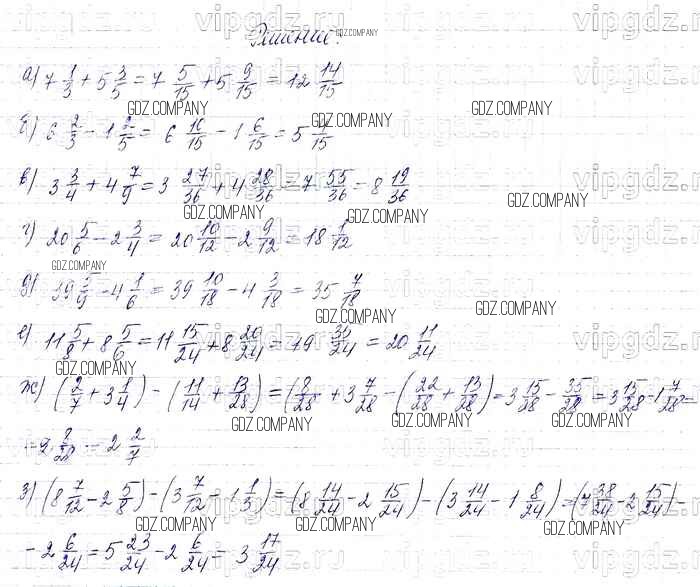 vipgdz.ru vipgdz.ru vipgdz.ru
Решение:
GDZ.COMPANY
а) 7 1/3 + 5 3/5 = 7 5/15 + 5 9/15 = 12 14/15
GDZ.COMPANY GDZ.COMPANY GDZ.COMPANY
б) 6 2/3 - 1 2/5 = 6 10/15 - 1 6/15 = 5 4/15
в) 3 3/4 + 4 7/9 = 3 27/36 + 4 28/36 = 7 55/36 = 8 19/36
GDZ.COMPANY GDZ.COMPANY GDZ.COMPANY
г) 20 5/6 - 2 3/4 = 20 10/12 - 2 9/12 = 18 1/12
GDZ.COMPANY
д) 39 5/9 - 4 1/6 = 39 10/18 - 4 3/18 = 35 7/18
GDZ.COMPANY GDZ.COMPANY
е) 11 5/8 + 8 5/6 = 11 15/24 + 8 20/24 = 19 35/24 = 20 11/24
GDZ.COMPANY
ж) (2/7 + 3 1/4) - (11/14 + 13/28) = (8/28 + 3 7/28 - (22/28 + 13/28) = 3 15/28 - 35/28 = 3 15/28 - 1 7/28 =
GDZ.COMPANY GDZ.COMPANY
= 2 8/28 = 2 2/7
з) (8 7/12 - 2 5/8) - (3 7/12 - 1 1/3) = (8 14/24 - 2 15/24) - (3 14/24 - 1 8/24) = (7 38/24 - 2 15/24) -
GDZ.COMPANY GDZ.COMPANY GDZ.COMPANY
- 2 6/24 = 5 23/24 - 2 6/24 = 3 17/24
GDZ.COMPANY